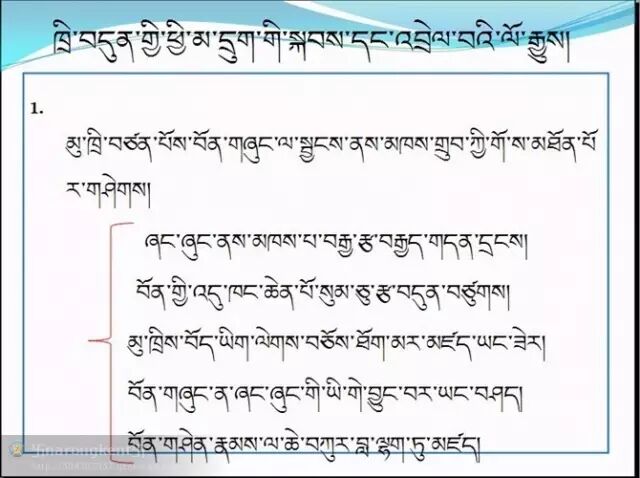 ཁྲི་བདུན་གྱི་ཕྱི་མ་དྲུག་གི་སྐབས་དང་འབྲེལ་བའི་ལོ་རྒྱུས།
1.
མུ་ཁྲི་བཙན་པོས་བོན་གཞུང་ལ་སྦྱངས་ནས་མཁས་གྲུབ་ཀྱི་གོ་ས་མཐོན་པོ
ར་གཤེགས།
ཞང་ཞུང་ནས་མཁས་པ་བརྒྱ་རྩ་བརྒྱད་གདན་དྲངས།
བོན་གྱི་འདུ་ཁང་ཆེན་པོ་སུམ་ཅུ་རྩ་བདུན་བཙུགས།
མུ་ཁྲིས་བོད་ཡིག་ལེགས་བཅོས་ཐོག་མར་མཛད་ཡང་ཟེར།
བོན་གཞུང་ན་ཞང་ཞུང་གི་ཡི་གེ་བྱུང་བར་ཡང་བཤད།
བོན་གཤེན་རྣམས་ལ་ཆེ་བཀུར་བླ་ལྷག་ཏུ་མཛད།